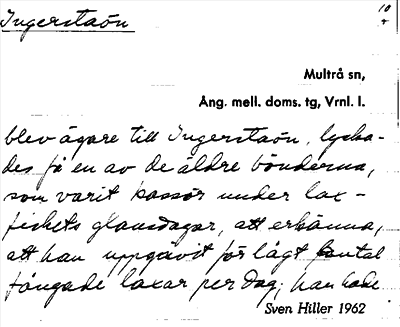 Ingerstaön
10
+
Multrå sn,
Ång. mell. doms. tg, Vrnl. l.
blev ägare till Ingerstaön, lycka-
des få en av de äldre bönderna,
som varit kassör under lax-
fiskets glansdagar, att erkänna,
att han uppgivit för lågt antal
fångade laxar per dag; han hade
Sven Hiller 1962